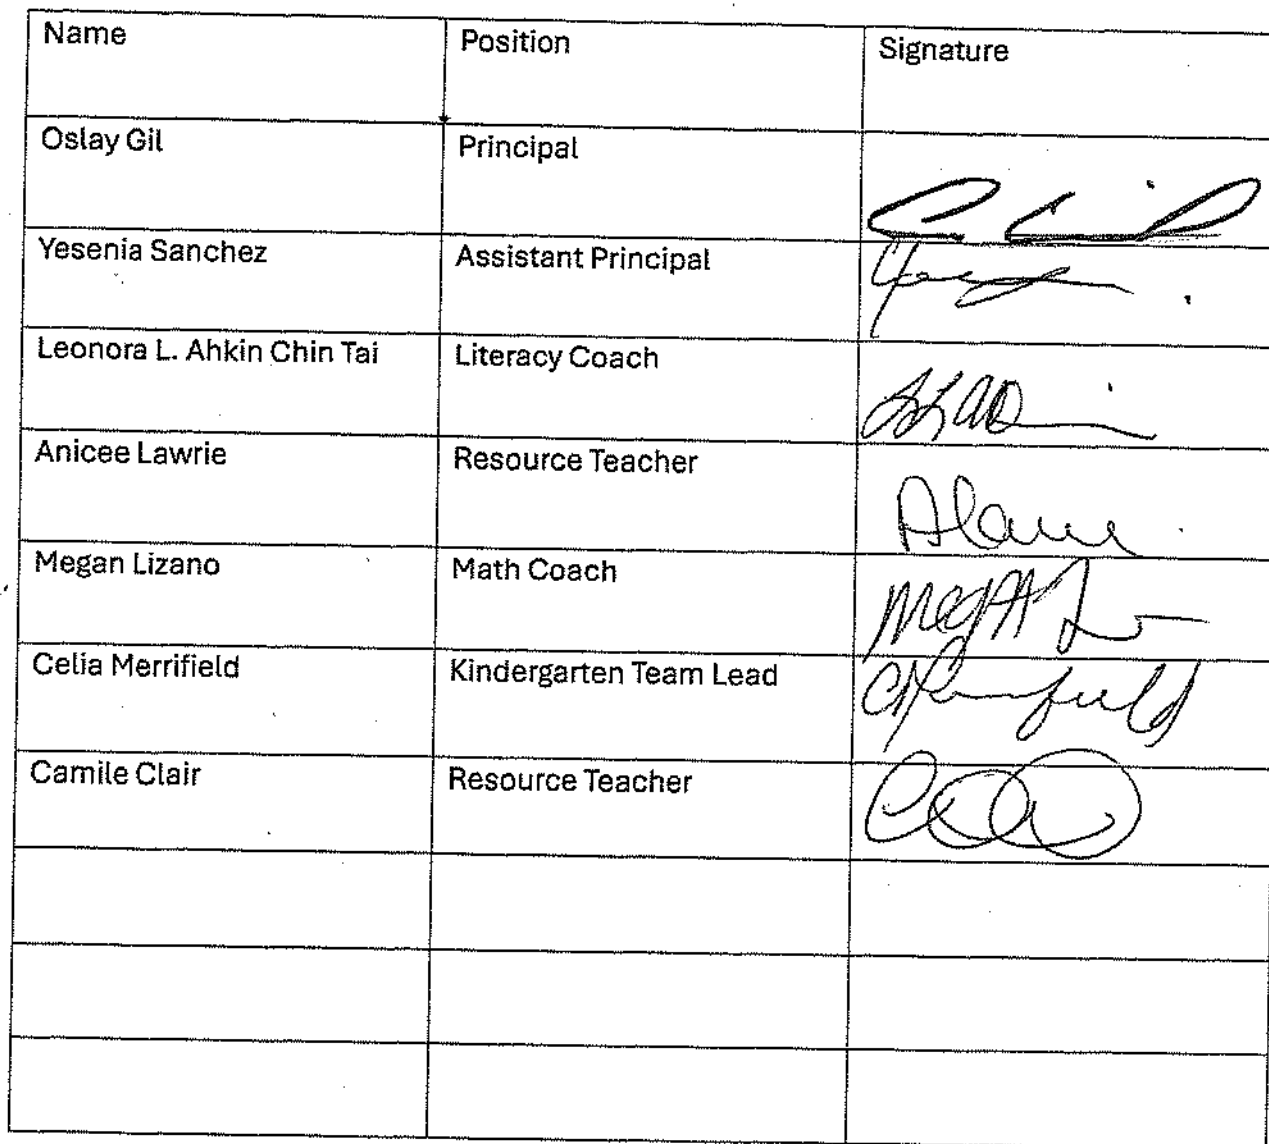 Name Position Signature
Oslay Gil Principal
Yesenia Sanchez Assistant Principal
Leonora L. Ahkin Chin Tai Literacy Coach
Anicee Lawrie Resource Teacher
Megan Lizano Math Coach
Celia Merrifield Kindergarten Team Lead
Camile Clair Resource Teacher